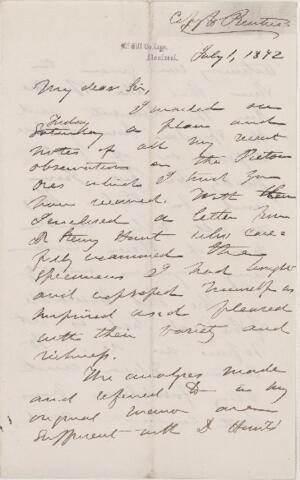 Copy to
McGill College,
Montreal.
July 1, 1892
My dear Sir,
I mailed on
Friday
Saturday a plan and
notes of all my recent
observations on the Pictou
ores which I trust you
have received. With them
I enclosed a letter from
Dr Sterry Hunt who care=
fully examined the
specimens I had brought
and expressed himself as
surprised and pleased
with their variety and
richness.
The analyses made
and referred to in my
original memoir are
sufficient with Dr Hunts'